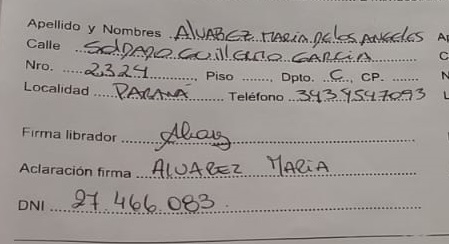 Apellido y Nombres ALVAREZ MARIA DE LOS ANGELES
Calle SOLDADO GUILLERMO GARCIA
Nro. 2324 Piso Dpto. C CP.
Localidad PARANÁ Teléfono 3434547093
Firma librador
Aclaración firma ALVAREZ MARIA
DNI 27.466.083.